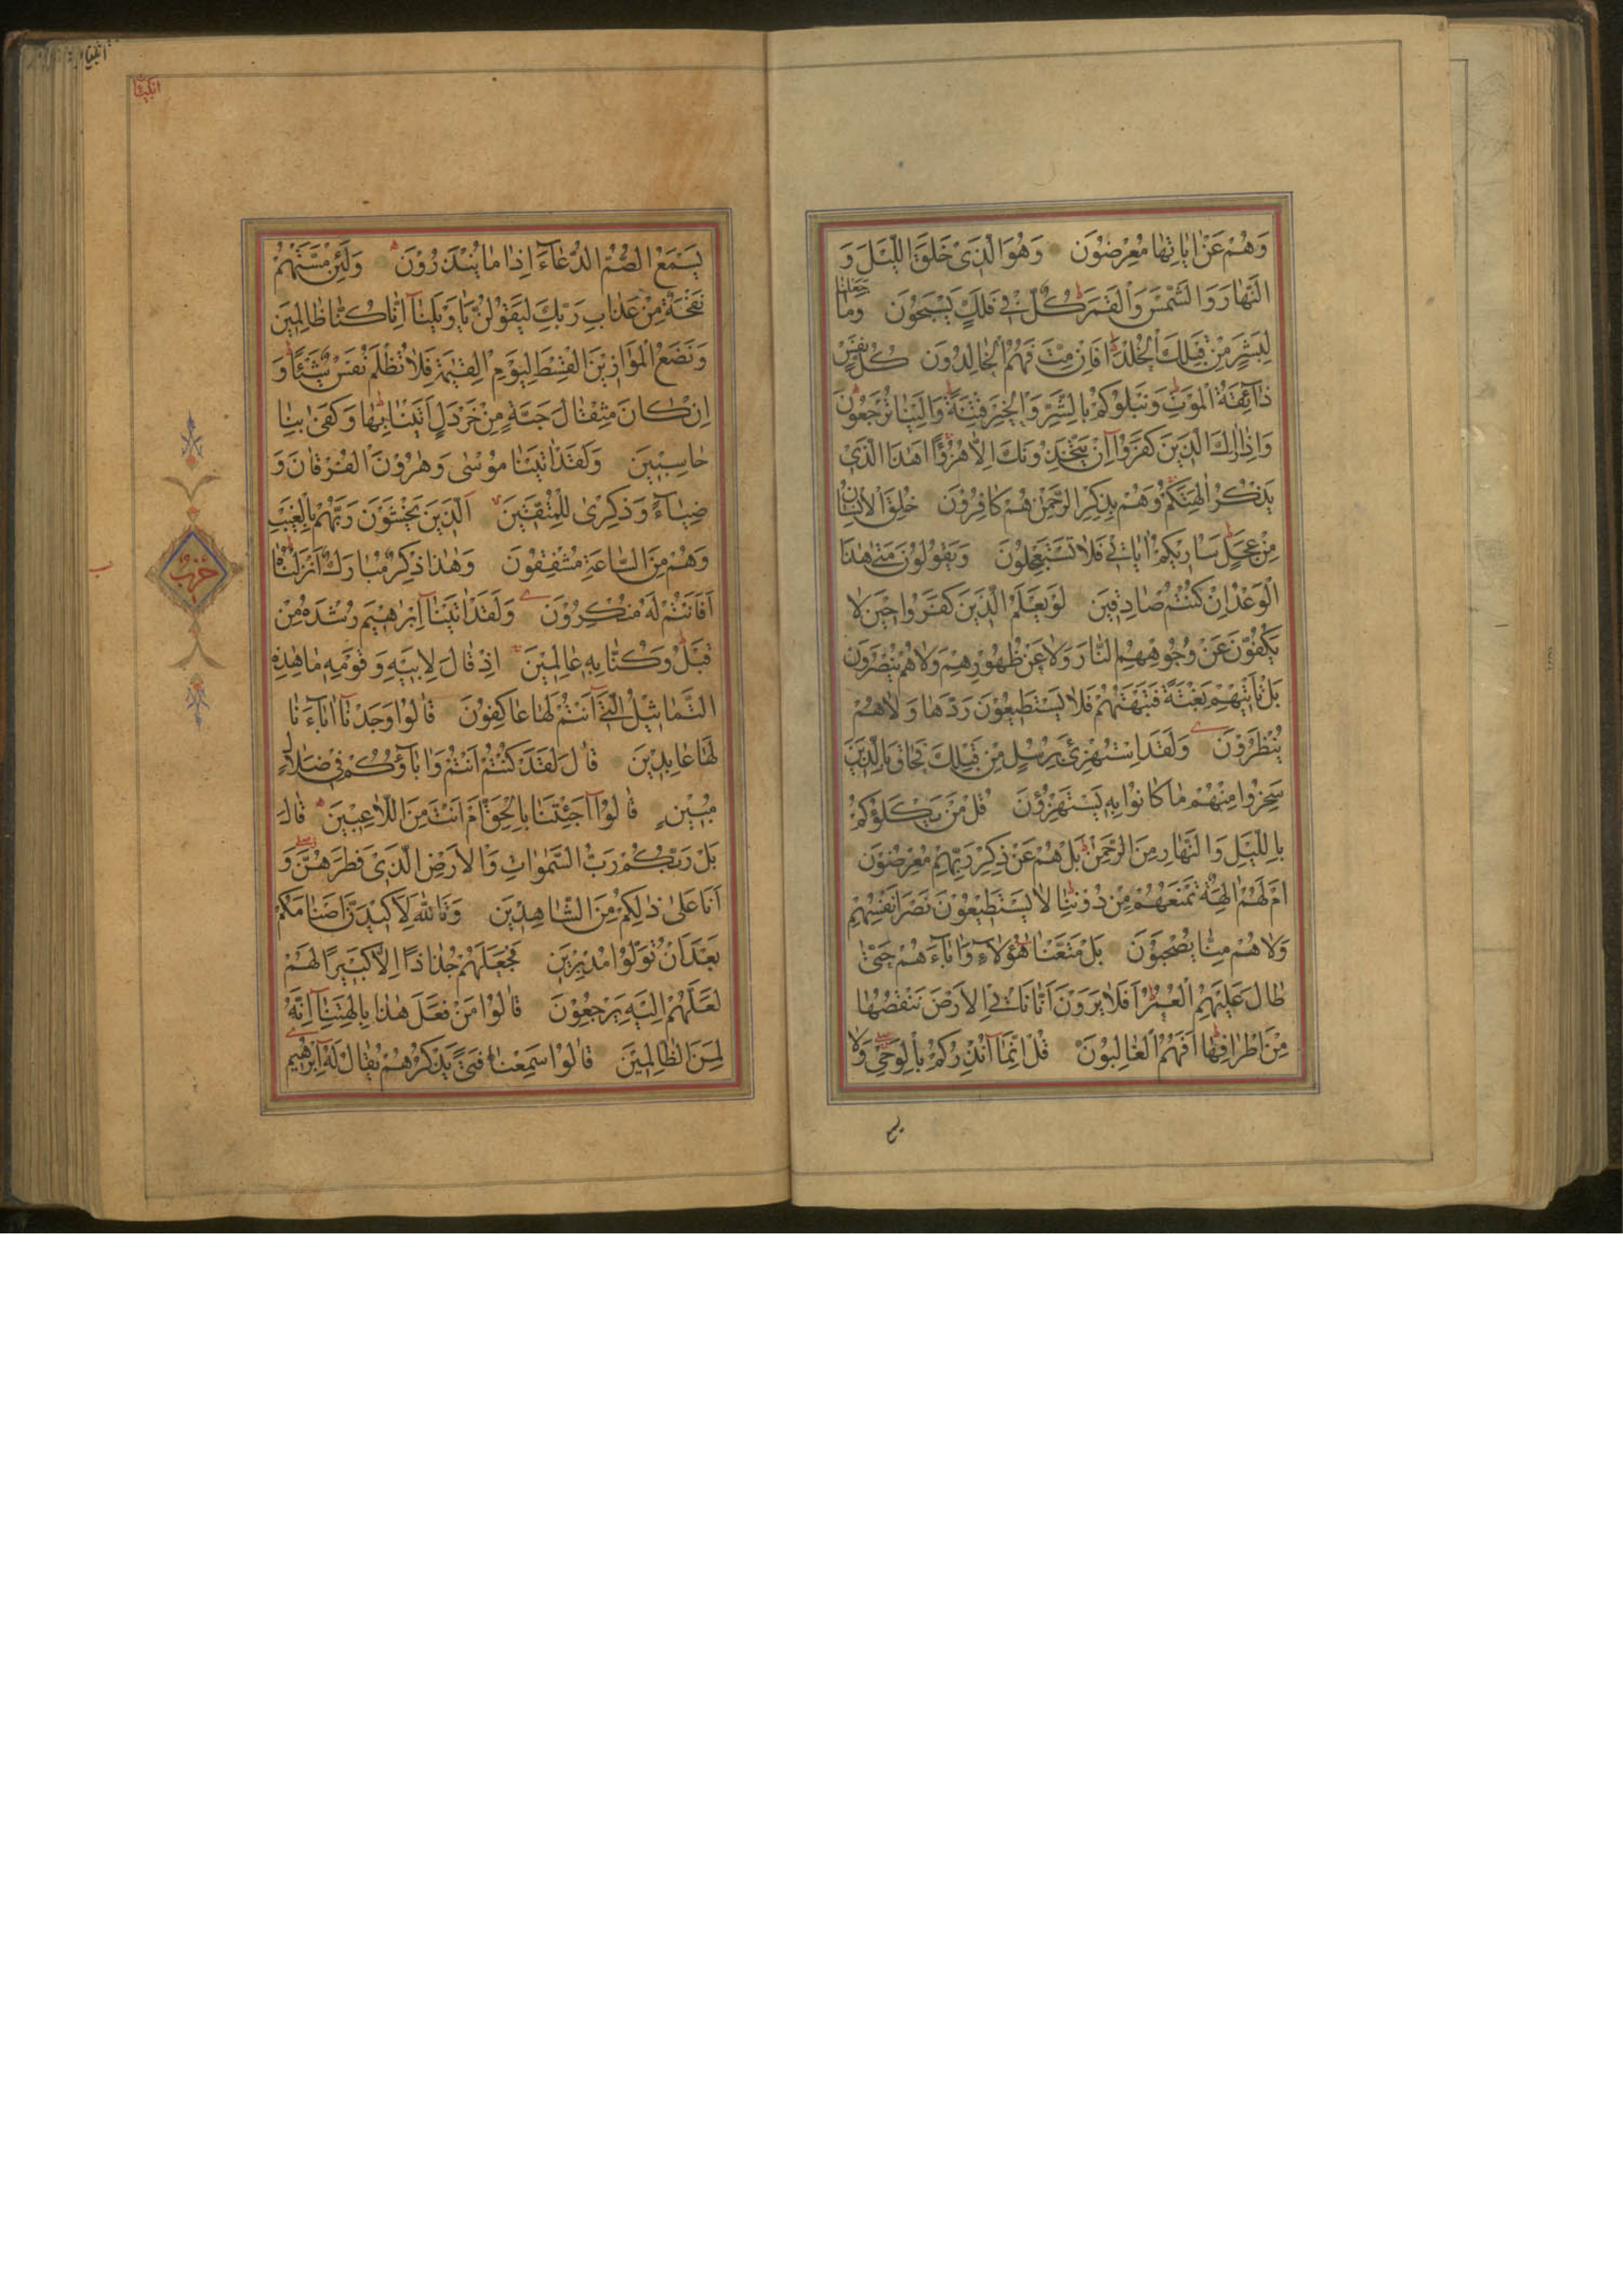 وَهُمْ عَنْ اٰيَاتِهَا مُعْرِضُوْنَ وَهُوَ الَّذِىْ خَلَقَ الَّيْلَ وَ
النَّهَارَ وَالشَّمْسَ وَالْقَمَرَ كُلٌّ فِىْ فَلَكٍ يَسْبَحُوْنَ وَمَا جَعَلْنَا
لِبَشَرٍ مِنْ قَبْلِكَ الْخُلْدَ اَفَاِنْ مِتَّ فَهُمُ الْخَالِدُوْنَ كُلُّ نَفْسٍ
ذَآئِقَةُ الْمَوْتِ وَنَبْلُوْكُمْ بِالشَّرِّ وَالْخَيْرِ فِتْنَةً وَاِلَيْنَا تُرْجَعُوْنَ
وَاِذَا رَاٰكَ الَّذِيْنَ كَفَرُوْا اِنْ يَتَّخِذُوْنَكَ اِلَّا هُزُوًا اَهٰذَا الَّذِىْ
يَذْكُرُ اٰلِهَتَكُمْ وَهُمْ بِذِكْرِ الرَّحْمٰنِ هُمْ كَافِرُوْنَ خُلِقَ الْاِنْسَانُ
مِنْ عَجَلٍ سَاُرِيْكُمْ اٰيَاتِىْ فَلَا تَسْتَعْجِلُوْنَ وَيَقُوْلُوْنَ مَتٰى هٰذَا
الْوَعْدُ اِنْ كُنْتُمْ صَادِقِيْنَ لَوْ يَعْلَمُ الَّذِيْنَ كَفَرُوا حِيْنَ لَا
يَكُفُّوْنَ عَنْ وُجُوْهِهِمُ النَّارَ وَلَا عَنْ ظُهُوْرِهِمْ وَلَا هُمْ يُنْصَرُوْنَ
بَلْ تَاْتِيْهِمْ بَغْتَةً فَتَبْهَتُهُمْ فَلَا يَسْتَطِيْعُوْنَ رَدَّهَا وَلَا هُمْ
يُنْظَرُوْنَ وَلَقَدِ اسْتُهْزِئَ بِرُسُلٍ مِنْ قَبْلِكَ فَحَاقَ بِالَّذِيْنَ
سَخِرُوا مِنْهُمْ مَا كَانُوا بِهِ يَسْتَهْزِؤُنَ قُلْ مَنْ يَكْلَؤُكُمْ
بِالَّيْلِ وَالنَّهَارِ مِنَ الرَّحْمٰنِ بَلْ هُمْ عَنْ ذِكْرِ رَبِّهِمْ مُعْرِضُوْنَ
اَمْ لَهُمْ اٰلِهَةٌ تَمْنَعُهُمْ مِنْ دُوْنِنَا لَا يَسْتَطِيْعُوْنَ نَصْرَ اَنْفُسِهِمْ
وَلَا هُمْ مِنَّا يُصْحَبُوْنَ بَلْ مَتَّعْنَا هٰؤُلَآءِ وَاٰبَآءَهُمْ حَتّٰى
طَالَ عَلَيْهِمُ الْعُمُرُ اَفَلَا يَرَوْنَ اَنَّا نَاْتِى الْاَرْضَ نَنْقُصُهَا
مِنْ اَطْرَافِهَا اَفَهُمُ الْغَالِبُوْنَ قُلْ اِنَّمَآ اُنْذِرُكُمْ بِالْوَحْىِ وَلَا
انبيا
يَسْمَعُ الصُّمُّ الدُّعَآءَ اِذَا مَا يُنْذَرُوْنَ وَلَئِنْ مَسَّتْهُمْ
نَفْحَةٌ مِنْ عَذَابِ رَبِّكَ لَيَقُوْلُنَّ يَا وَيْلَنَآ اِنَّا كُنَّا ظَالِمِيْنَ
وَنَضَعُ الْمَوَازِيْنَ الْقِسْطَ لِيَوْمِ الْقِيٰمَةِ فَلَا تُظْلَمُ نَفْسٌ شَيْئًا وَ
اِنْ كَانَ مِثْقَالَ حَبَّةٍ مِنْ خَرْدَلٍ اَتَيْنَا بِهَا وَكَفٰى بِنَا
حَاسِبِيْنَ وَلَقَدْ اٰتَيْنَا مُوْسٰى وَهٰرُوْنَ الْفُرْقَانَ وَ
ضِيَآءً وَذِكْرٰى لِلْمُتَّقِيْنَ اَلَّذِيْنَ يَخْشَوْنَ رَبَّهُمْ بِالْغَيْبِ
وَهُمْ مِنَ السَّاعَةِ مُشْفِقُوْنَ وَهٰذَا ذِكْرٌ مُبَارَكٌ اَنْزَلْنَاهُ
اَفَاَنْتُمْ لَهُ مُنْكِرُوْنَ وَلَقَدْ اٰتَيْنَآ اِبْرٰهِيْمَ رُشْدَهُ مِنْ
قَبْلُ وَكُنَّا بِهِ عَالِمِيْنَ اِذْ قَالَ لِاَبِيْهِ وَقَوْمِهِ مَا هٰذِهِ
التَّمَاثِيْلُ الَّتِىْٓ اَنْتُمْ لَهَا عَاكِفُوْنَ قَالُوْا وَجَدْنَآ اٰبَآءَنَا
لَهَا عَابِدِيْنَ قَالَ لَقَدْ كُنْتُمْ اَنْتُمْ وَاٰبَآؤُكُمْ فِىْ ضَلَالٍ
مُبِيْنٍ قَالُوْٓا اَجِئْتَنَا بِالْحَقِّ اَمْ اَنْتَ مِنَ اللَّاعِبِيْنَ قَالَ
بَلْ رَبُّكُمْ رَبُّ السَّمٰوَاتِ وَالْاَرْضِ الَّذِىْ فَطَرَهُنَّ وَ
اَنَا عَلٰى ذٰلِكُمْ مِنَ الشَّاهِدِيْنَ وَتَاللّٰهِ لَاَكِيْدَنَّ اَصْنَامَكُمْ
بَعْدَ اَنْ تُوَلُّوْا مُدْبِرِيْنَ فَجَعَلَهُمْ جُذَاذًا اِلَّا كَبِيْرًا لَهُمْ
لَعَلَّهُمْ اِلَيْهِ يَرْجِعُوْنَ قَالُوْا مَنْ فَعَلَ هٰذَا بِاٰلِهَتِنَآ اِنَّهُ
لَمِنَ الظَّالِمِيْنَ قَالُوْا سَمِعْنَا فَتًى يَذْكُرُهُمْ يُقَالُ لَهُ اِبْرٰهِيْمُ
حزب